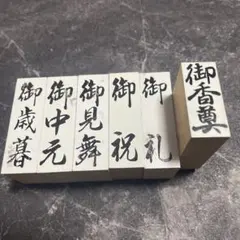 御歳暮
御中元
御見舞
御祝
御礼
御香奠